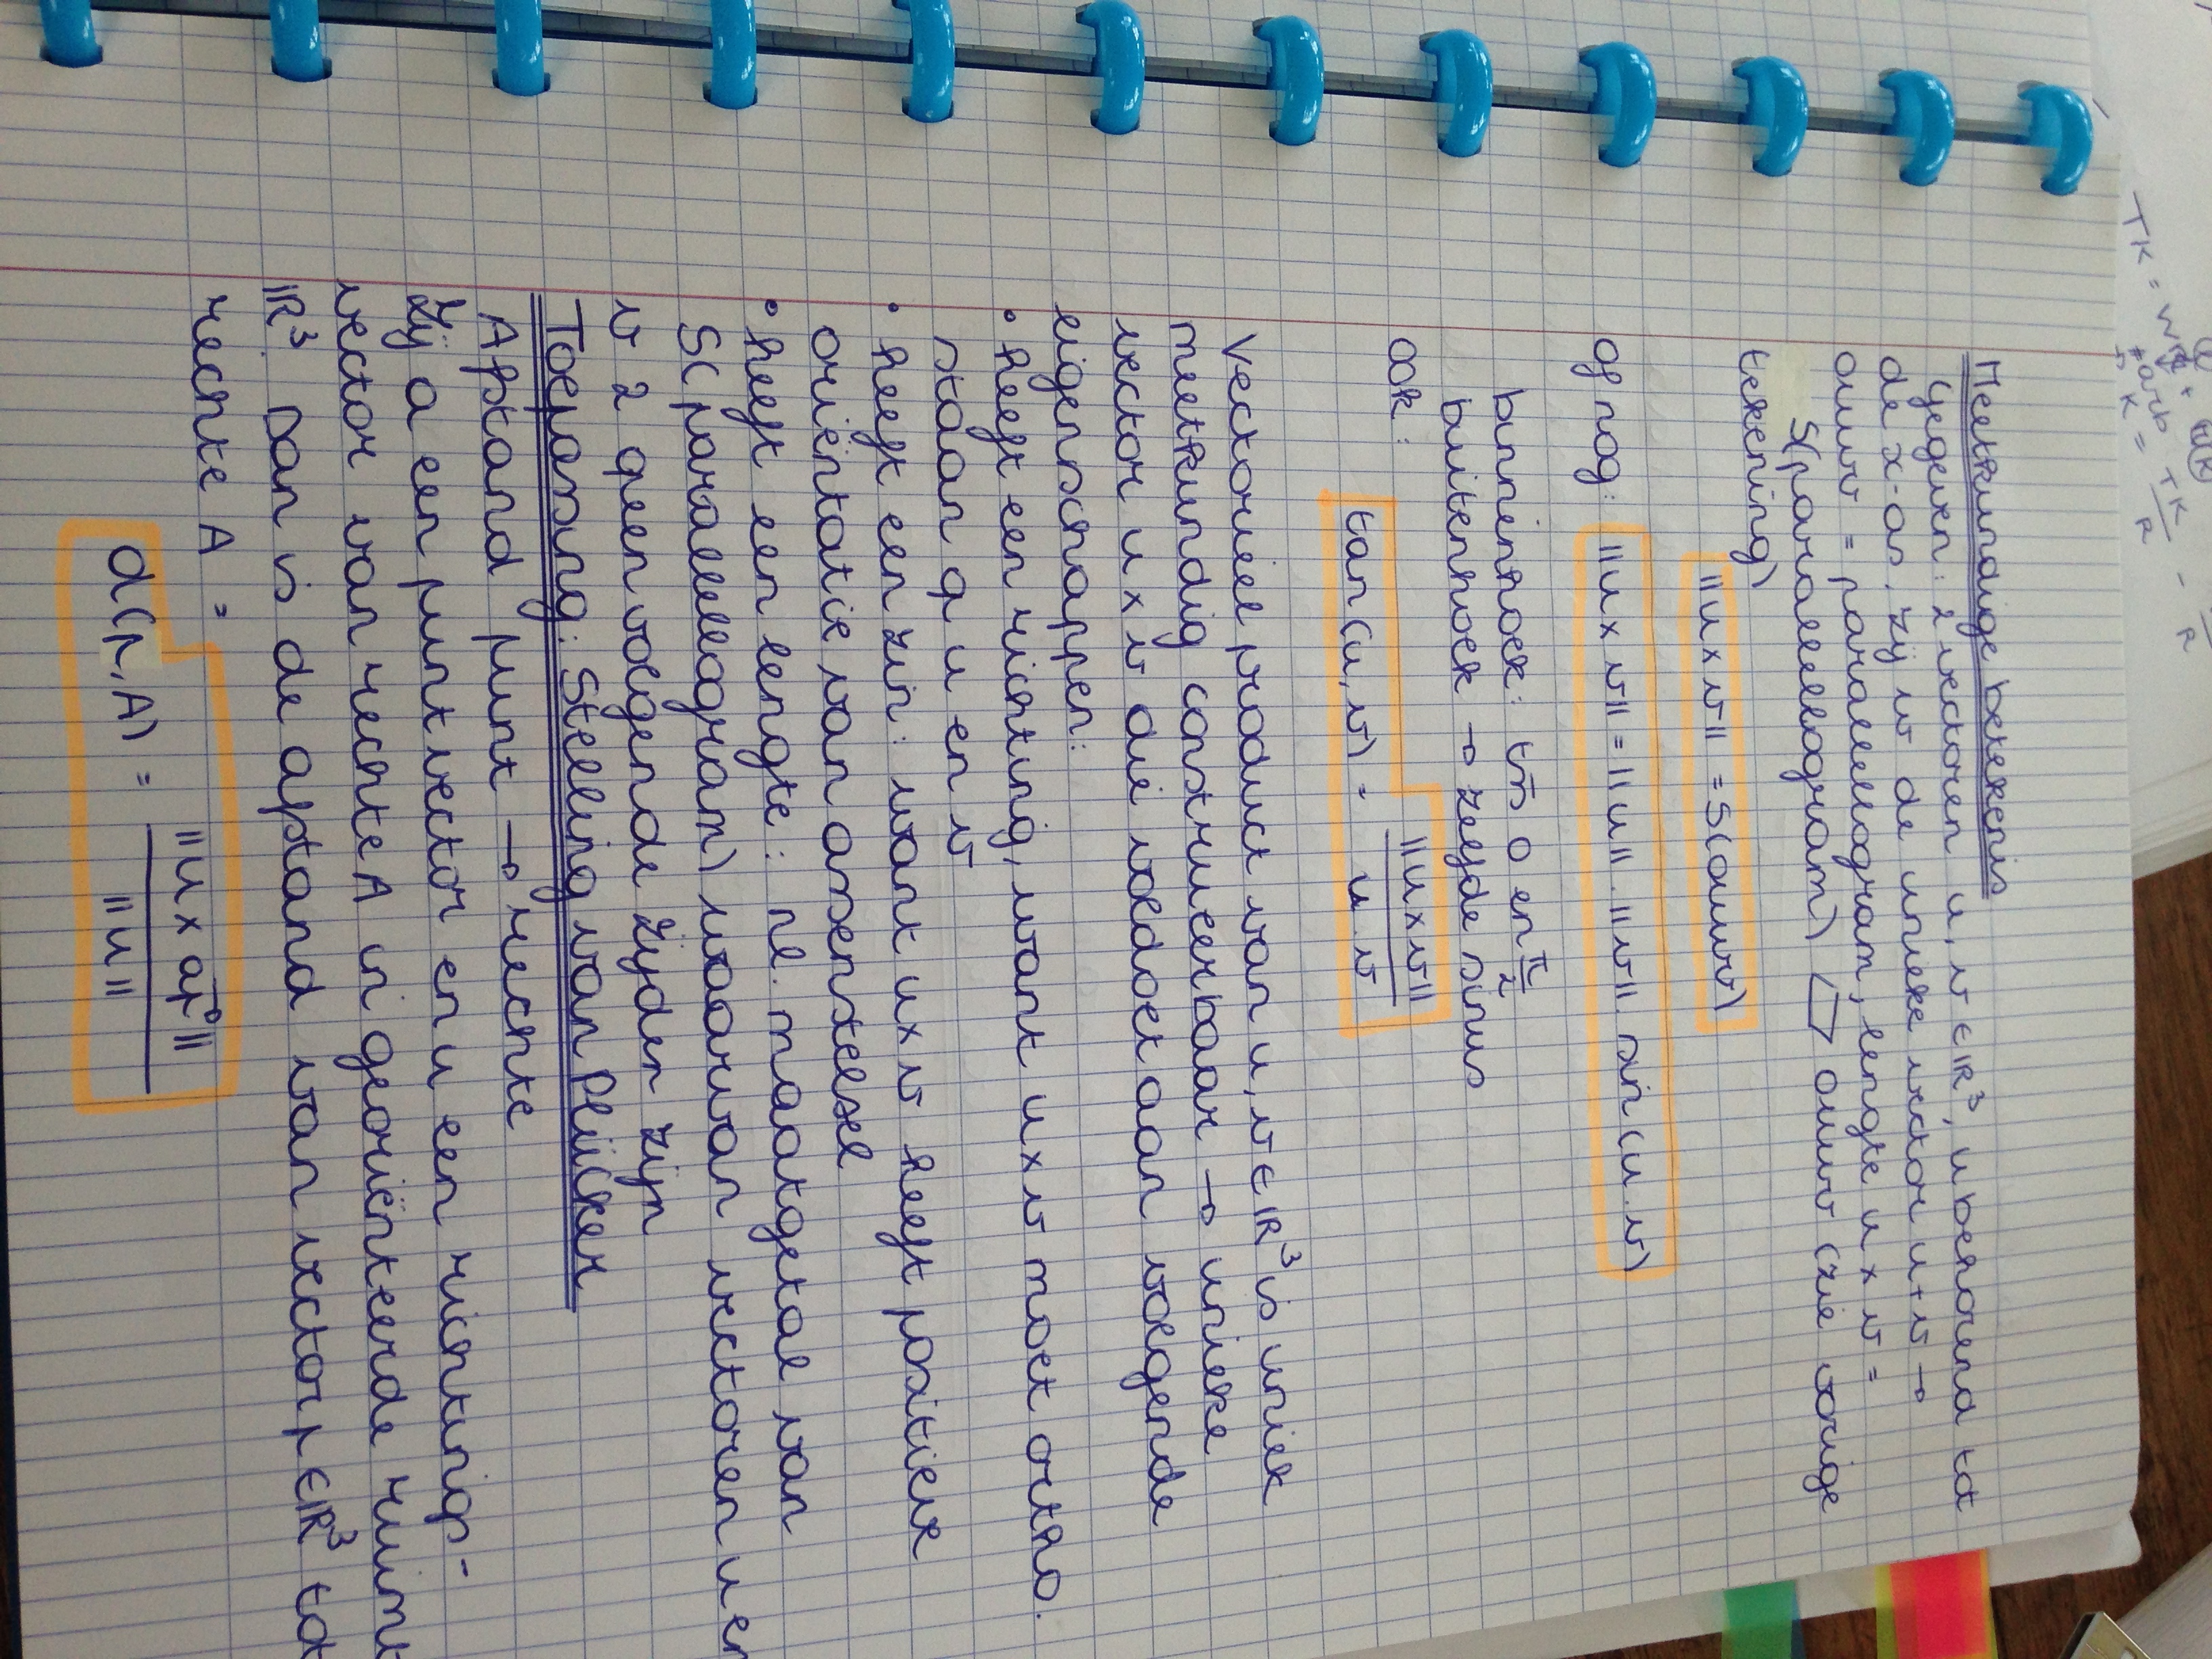 Meetkundige betekenis
Gegeven: 2 vectoren u, v ∈ ℝ³, u behorend tot
de x-as, zij w de unieke vector u+v →
ouwv = parallellogram, lengte u x v =
S(parallellogram) ▱ ouwv (zie vorige
tekening)
||u x v|| = S(ouwv)
of nog: ||u x v|| = ||u|| . ||v|| . sin (u.v)
binnenhoek: tss 0 en π/2
buitenhoek → zelfde sinus
ook:
tan (u, v) = ||u x v|| / u . v
Vectorieel product van u, v ∈ ℝ³ is uniek
meetkundig construeerbaar → unieke
vector u x v die voldoet aan volgende
eigenschappen:
• heeft een richting, want u x v moet ortho.
staan q u en v
• heeft een zin: want u x v heeft positieve
oriëntatie van assenstelsel
• heeft een lengte: nl. maatgetal van
S(parallellogram) waarvan vectoren u en
v 2 opeenvolgende zijden zijn
Toepassing: Stelling van Plücker
Afstand punt → rechte
Zij a een puntvector en u een richtings-
vector van rechte A in georiënteerde ruimt
ℝ³. Dan is de afstand van vector p ∈ ℝ³ tot
rechte A =
d(p, A) = ||u x ap⃗|| / ||u||
TK =
K = TK / R